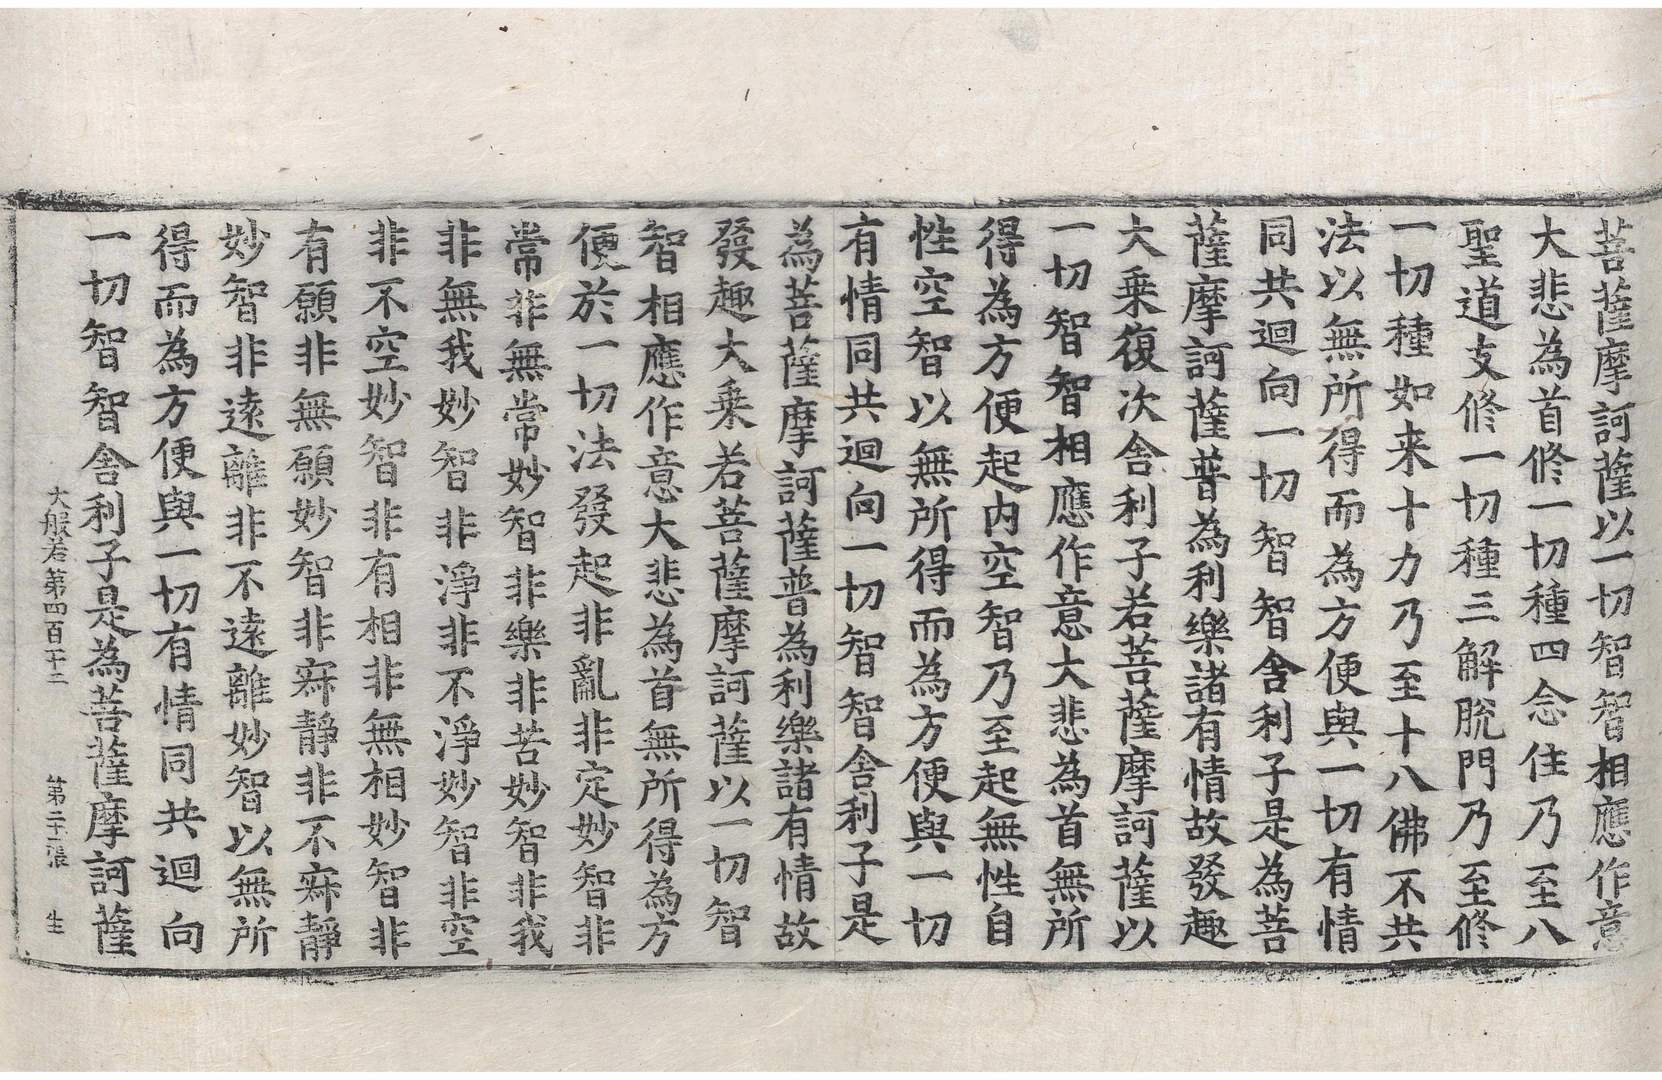 菩薩摩訶薩以一切智智相應作意
大悲為首修一切種四念住乃至八
聖道支修一切種三解脫門乃至修
一切種如来十力乃至十八佛不共
法以無所得而為方便與一切有情
同共迴向一切智智舍利子是為菩
薩摩訶薩普為利樂諸有情故發趣
大乗復次舍利子若菩薩摩訶薩以
一切智智相應作意大悲為首無所
得為方便起内空智乃至起無性自
性空智以無所得而為方便與一切
有情同共迴向一切智智舍利子是
為菩薩摩訶薩普為利樂諸有情故
發趣大乗若菩薩摩訶薩以一切智
智相應作意大悲為首無所得為方
便於一切法發起非亂非定妙智非
常非無常妙智非樂非苦妙智非我
非無我妙智非淨非不淨妙智非空
非不空妙智非有相非無相妙智非
有願非無願妙智非寂靜非不寂靜
妙智非遠離非不遠離妙智以無所
得而為方便與一切有情同共迴向
一切智智舍利子是為菩薩摩訶薩
大般若第四百十二 第二十一張 生